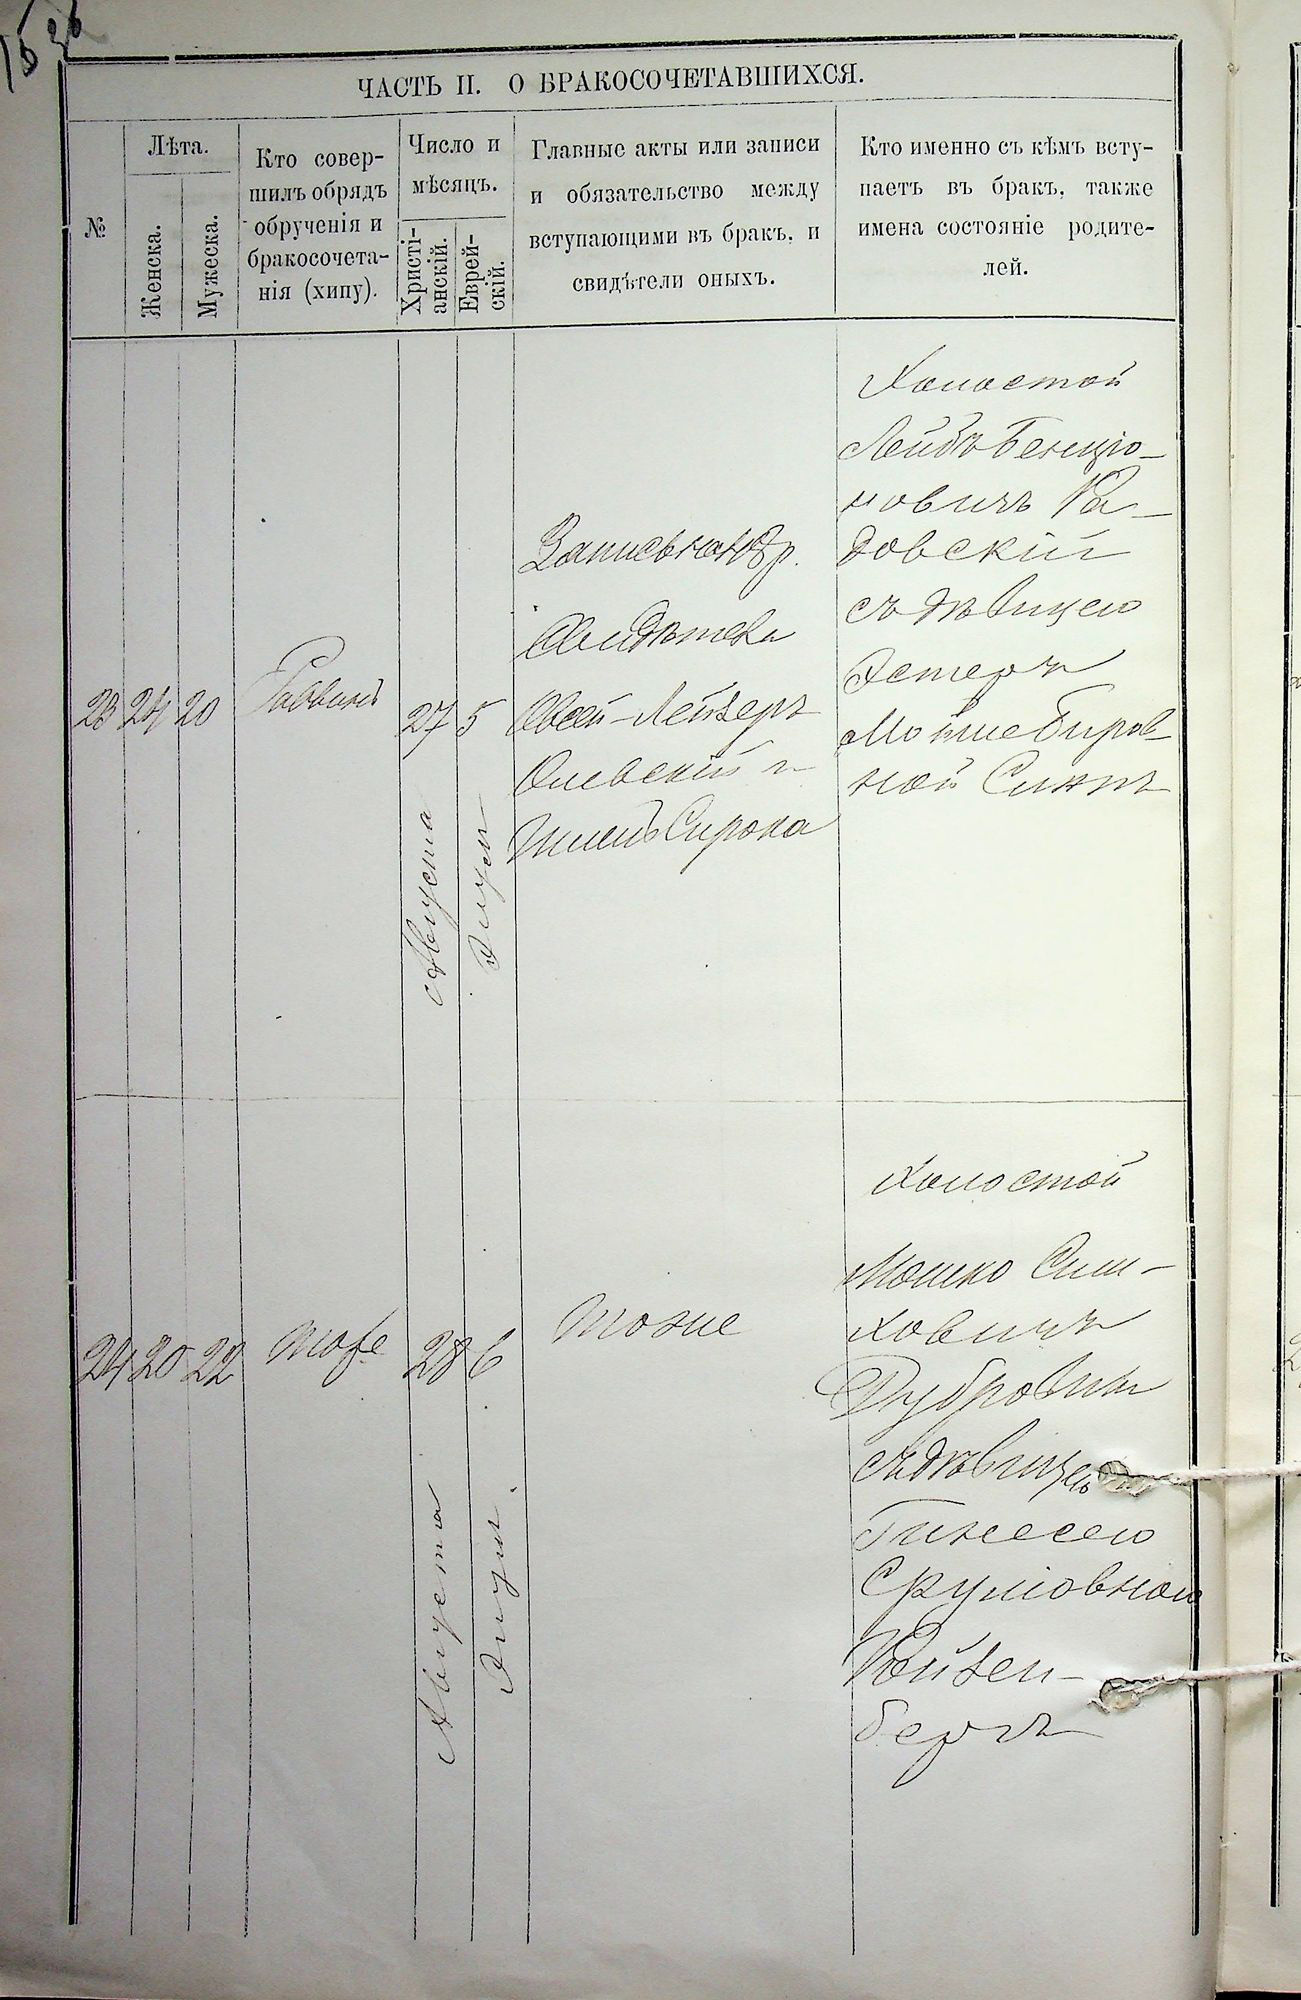 ЧАСТЬ II. О БРАКОСОЧЕТАВШИХСЯ.
№
Лѣта.
Женска.
Мужеска.
Кто совер-
шилъ обрядъ
обрученія и
бракосочета-
нія (хипу).
Число и
мѣсяцъ.
Христі-
анскій.
Еврей-
скій.
Главные акты или записи
и обязательство между
вступающими въ бракъ, и
свидѣтели оныхъ.
Кто именно съ кѣмъ всту-
паетъ въ бракъ, также
имена состояніе родите-
лей.
23
24
20
Раввинъ
27
Августа
5
Элул
Запись на
Свидѣтели
Овсей-Лейзеръ
Олевскій и
Сирота
Холостой
Лейбъ Бенціо-
новичъ Ра-
довскій
съ дѣвицею
Эстеръ
24
20
22
Тоже
28
Августа
6
Элул
Тоже
Холостой
Мошко Сим-
ховичъ
Дубровин
съ дѣвицею
Сруловною
Ройзен-
бергъ